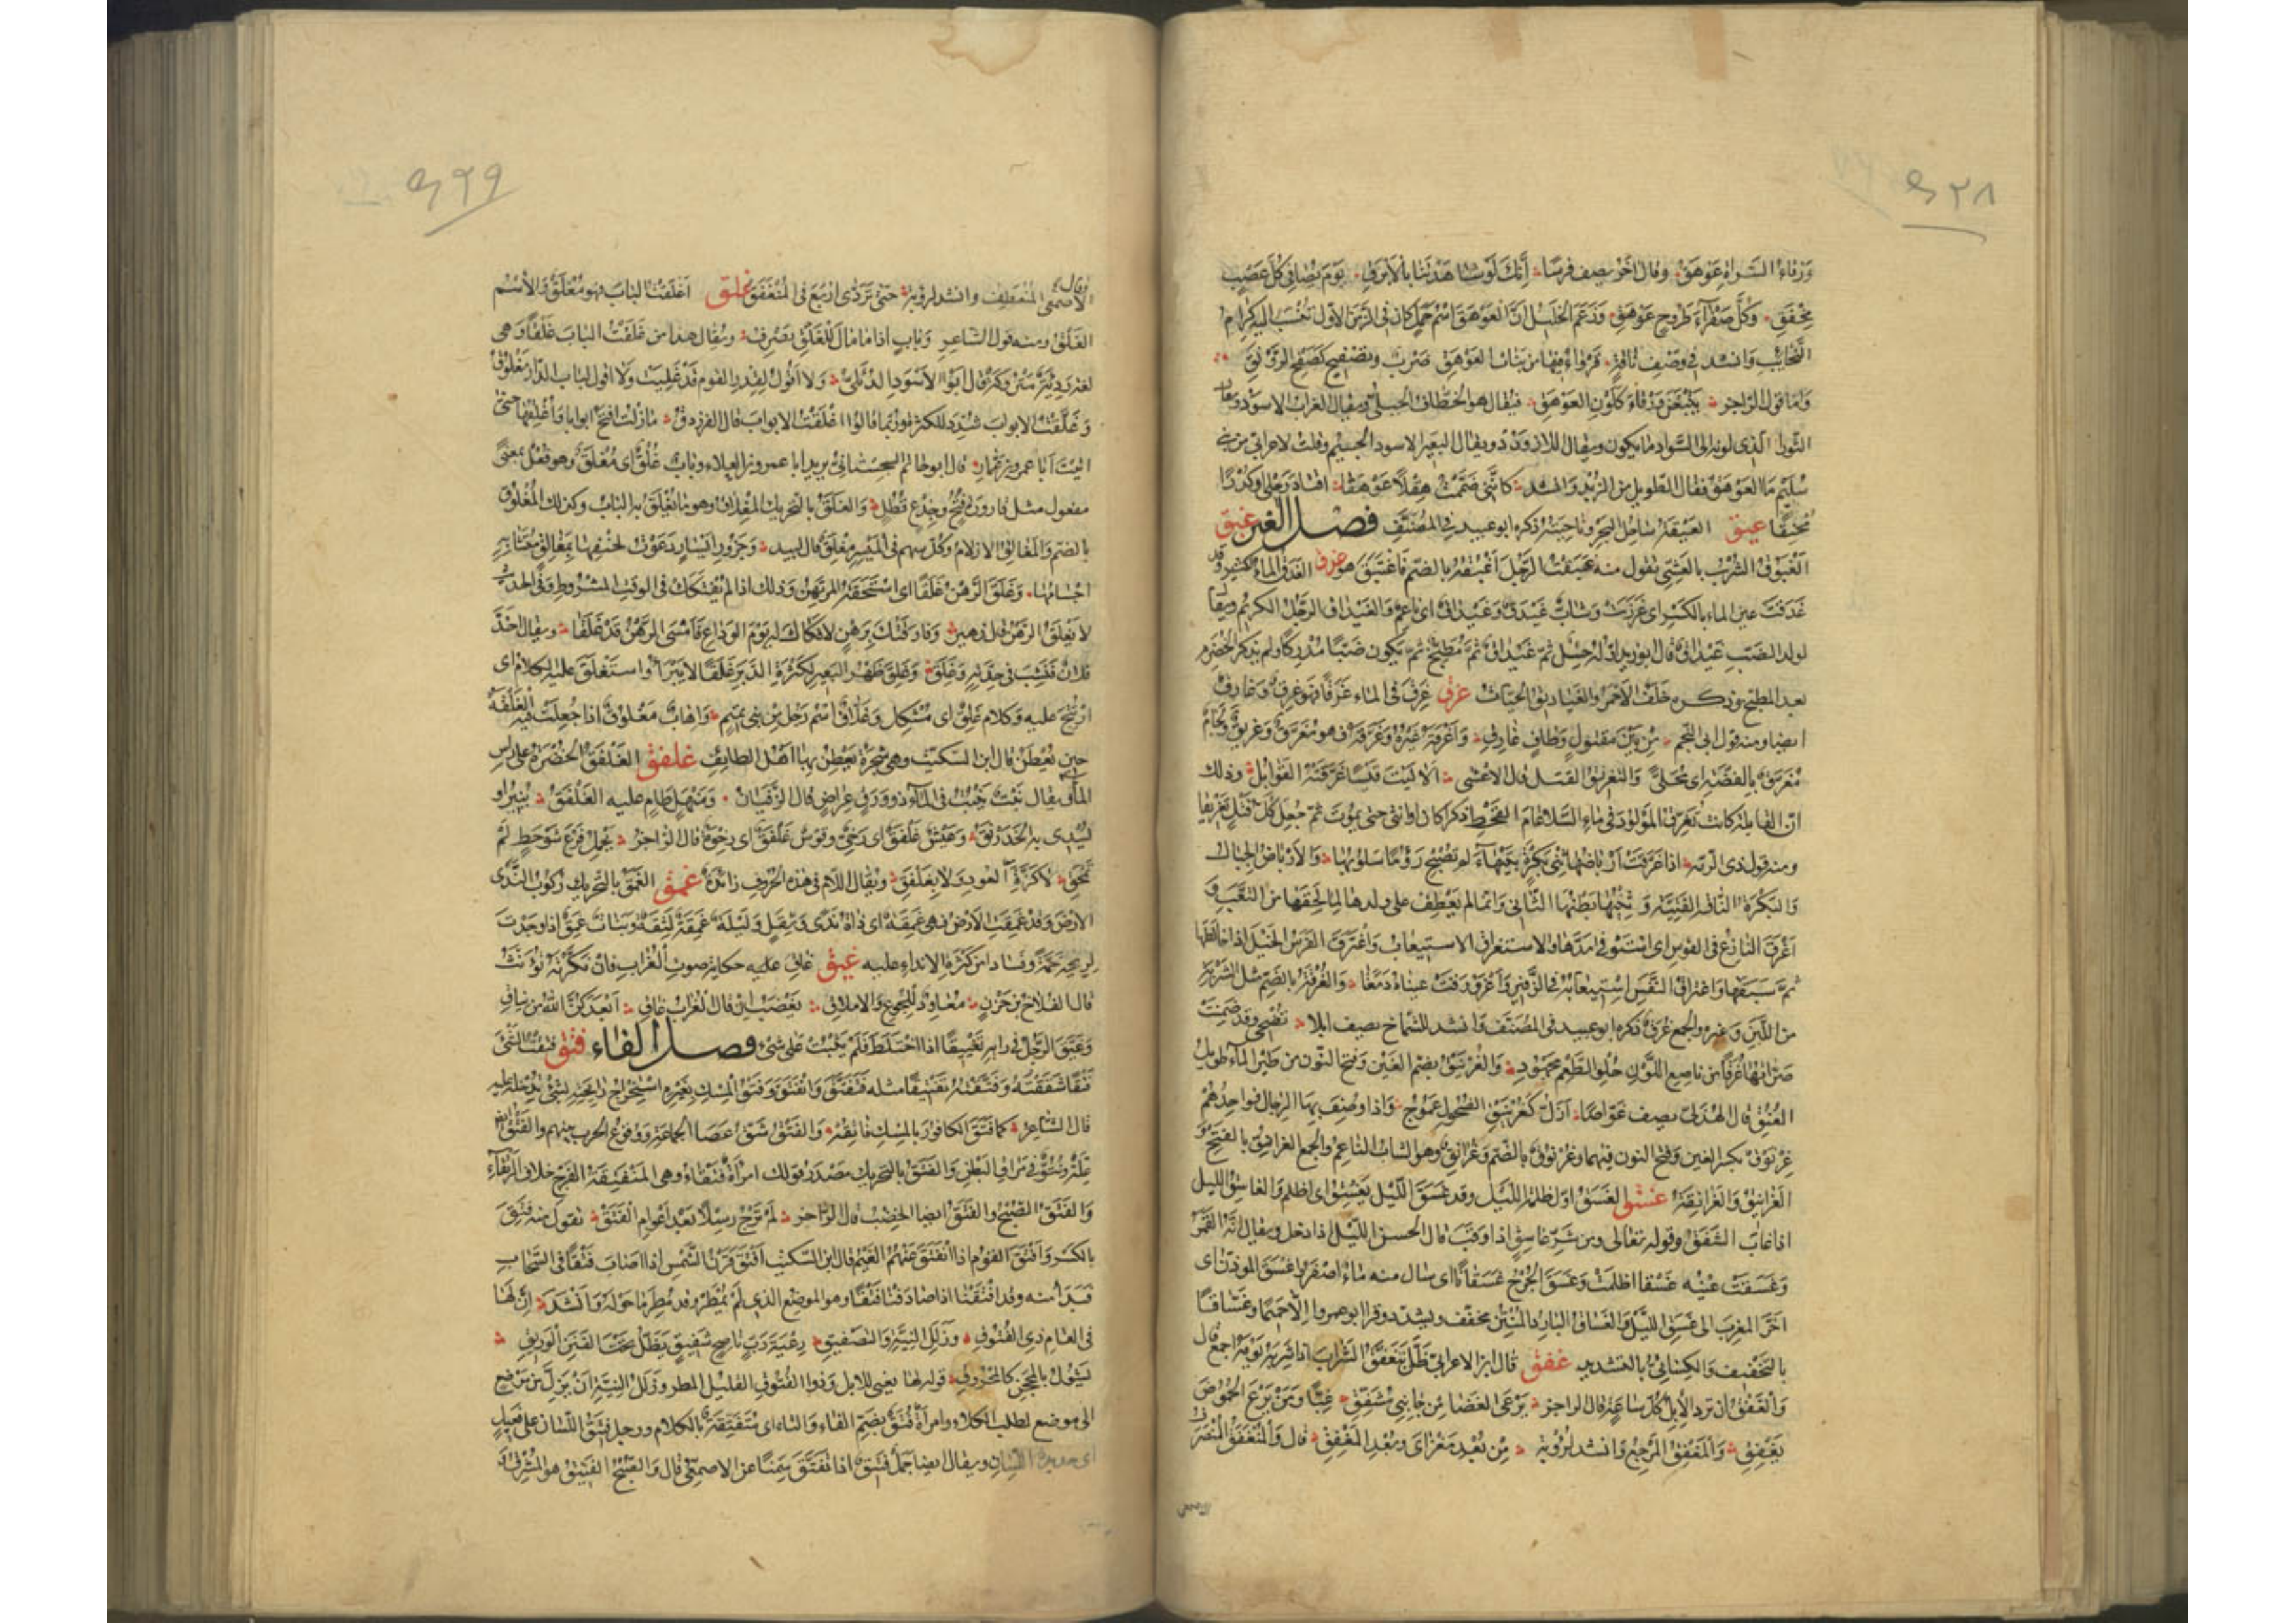 ٩٢٨
ورقاء السراة عوهق وقال آخر يصف فرسا إنك لو شاهدتنا بالأبرق يوم نصافي كل عضب
مخفق وكل صفراء طروح عوهق وزعم الخليل أن العوهق اسم جمل كان في الزمن الأول تنسب إليه كرام
النجائب وأنشد في وصف ناقة قرواء فيها من بنات العوهق ضرب وتصفيح كصفح الرونق
وأما قول الراجز يتبعن ورقاء كلون العوهق فيقال هو الخطاف الجبلي ويقال الغراب الأسود ويقال
الثور الذي لونه إلى السواد ما يكون ويقال اللازورد ويقال البعير الأسود الجسيم وقلت لأعرابي من بني
سليم ما العوهق فقال الطويل من الربد وأنشد كأنني ضمنت هقلا عوهقا أقتاد رحلي وكدرا
محنقا عيق العيقة ساحل البحر وناحيته ذكره أبو عبيد في المصنف فصل الغين غبق
الغبوق الشرب بالعشي تقول منه غبقت الرجل أغبقه بالضم فاغتبق هو غدق الغدق الماء الكثير وقد
غدقت عين الماء بالكسر أي غزرت وشاب غيدق وغيداق أي ناعم والغيداق الرجل الكريم ويقال
لولد الضب غيداق قال أبو زيد أوله حسل ثم غيداق ثم مطبخ ثم يكون ضبا مدركا ولم يذكر الخضرم
بعد المطبخ وذكره خلف الأحمر والغياديق الحيات غرق غرق في الماء غرقا فهو غرق وغارق
أيضا ومنه قول أبي النجم من بين مقتول وطاف غارق وأغرقه غيره وغرقه فهو مغرق وغريق ولجام
مغرق بالفضة أي محلى والتغريق القتل قال الأعشى ألا ليت قيسا غرقته القوابل وذلك
أن القابلة كانت تغرق المولود في ماء السلا عام القحط ذكرا كان أو أنثى حتى يموت ثم جعل كل قتل تغريقا
ومنه قول ذي الرمة إذا غرقت أرباضها ثني بكرة بتيهاء لم تصبح رؤوما سلوبها والأرباض الحبال
والبكرة الناقة الفتية وثنيها بطنها الثاني وإنما لم يعطف على ولدها لما لحقها من التعب و
أغرق النازع في القوس أي استوفى مدها والاستغراق الاستيعاب واغترق الفرس الخيل إذا خالطها
ثم سبقها واغتراق النفس استيعابه في الزفير واغرورقت عيناه دمعا والغرقة بالضم مثل الشربة
من اللبن وغيره والجمع غرق ذكره أبو عبيد في المصنف وأنشد للشماخ يصف إبلا تضحي وقد ضمنت
ضراتها غرقا من ناصع اللون حلو الطعم مجهود والغرنيق بضم الغين وفتح النون من طير الماء طويل
العنق قال الهذلي يصف غواصا أزل كغرنيق الضحول عموج وإذا وصف بها الرجال فواحدهم
غرنوق بكسر الغين وفتح النون فيهما وغرنوق بالضم وغرانق وهو الشاب الناعم والجمع الغرانق بالفتح و
الغرانيق والغرانقة غسق الغسق أول ظلمة الليل وقد غسق الليل يغسق أي أظلم والغاسق الليل
إذا غاب الشفق وقوله تعالى ومن شر غاسق إذا وقب قال الحسن الليل إذا دخل ويقال إنه القمر
وغسقت عينه غسقا أظلمت وغسق الجرح غسقانا أي سال منه ماء أصفر وأغسق المؤذن أي
أخر المغرب إلى غسق الليل والغساق البارد المنتن مخفف ويشدد وقرأ أبو عمرو إلا حميما وغساقا
بالتخفيف والكسائي بالتشديد غفق قال ابن الأعرابي ظل يتغفق الشراب إذا شربه يومه أجمع قال
والغفق أن ترد الإبل كل ساعة قال الراجز ترعى الغضا من جانبي مشفق غبا ومن يرع الحموض
يغفق والمغفق المرجع وأنشد لرؤبة من بعد مغزاي وبعد المغفق قال والمنغفق المنصرف
الأصمعي
٩٢٩
وقال الأصمعي المنعطف وأنشد لرؤبة حتى تردى أربع في المنعفق غلق أغلقت الباب فهو مغلق والاسم
الغلق ومنه قول الشاعر وباب إذا ما مال للغلق يصرف ويقال هذا من غلقت الباب غلقا وهي
لغة رديئة متروكة قال أبو الأسود الدئلي ولا أقول لقدر القوم قد غليت ولا أقول لباب الدار مغلوق
وغلقت الأبواب شدد للكثرة وربما قالوا أغلقت الأبواب قال الفرزدق ما زلت أفتح أبوابا وأغلقها حتى
أتيت أبا عمرو بن عمار قال أبو حاتم السجستاني يريد أبا عمرو بن العلاء وباب غلق أي مغلق وهو فعل بمعنى
مفعول مثل قارورة فتح وجذع قطل والغلق بالتحريك المغلاق وهو ما يغلق به الباب وكذلك المغلوق
بالضم والمغالق الأزلام وكل سهم في الميسر مغلق قال لبيد وجزور أيسار دعوت لحتفها بمغالق متشابه
أجسامها وغلق الرهن غلقا أي استحقه المرتهن وذلك إذا لم يفتكك في الوقت المشروط وفي الحديث
لا يغلق الرهن قال زهير وفارقتك برهن لا فكاك له يوم الوداع فأمسى الرهن قد غلقا ويقال احتد
فلان فنشب في حدته وغلق وغلق ظهر البعير لكثرة الدبر غلقا لا يبرأ واستغلق عليه الكلام أي
ارتتج عليه وكلام غلق أي مشكل وغلاق اسم رجل من بني تميم وإهاب مغلوق إذا جعلت فيه الغلقة
حين يعطن قال ابن السكيت وهي شجرة يعطن بها أهل الطائف غلفق الغلفق الخضرة على رأس
الماء ويقال نبت ينبت في الماء ذو ورق عراض قال الزفيان ومنهل طام عليه الغلفق ينير أو
يسدي به الخدرنق وعيش غلفق أي رخي وقوس غلفق أي رخوة قال الراجز يحمل فرع شوحط لم
تمحق لا كزة العود ولا بغلفق ويقال اللام في هذه الحروف زائدة غمق الغمق بالتحريك ركوب الندى
الأرض وقد غمقت الأرض فهي غمقة أي ذات ندى وثقل وليلة غمقة لثقة ونبات غمق إذا وجدت
لريحه خمة وفسادا من كثرة الأنداء عليه غيق غاق غاق حكاية صوت الغراب فإن نكرته نونت
قال القلاخ بن حزن معاود للجوع والإملاق يغضب إن قال الغراب غاق أبعدكن الله من نياق
وغيق الرجل في رأيه تغييقا إذا اختلط فلم يثبت على شيء فصل الفاء فتق فتقت الشيء
فتقا شققته وفتقته تفتيقا مثله فتفتق وانفتق وفتق المسك بغيره استخراج رائحته بشيء تدخله عليه
قال الشاعر كما فتق الكافور بالمسك فاتقه والفتق شق عصا الجماعة ووقوع الحرب بينهم والفتق أيضا
علة ونتوء في مراق البطن والفتق بالتحريك مصدر قولك امرأة فتقاء وهي المنفتقة الفرج خلاف الرتقاء
والفتق الصبح والفتق أيضا الخصب قال الراجز لم ترج رسلا بعد أعوام الفتق تقول منه فتق
بالكسر وأفتق القوم إذا انفتق عنهم الغيم قال ابن السكيت أفتق قرن الشمس إذا أصاب فتقا في السحاب
فبدا منه وقد أفتقنا إذا صادفنا فتقا وهو الموضع الذي لم يمطر وقد مطر ما حوله وأنشد إن لها
في العام ذي الفتوق وزلل النية والتصفيق رعية رب ناصح شفيق يظل تحت الفنن الوريق
يشول بالمحجن كالمحروق قوله لها يعني للإبل وذو الفتوق القليل المطر وزلل النية أن يزل من موضع
إلى موضع لطلب الكلاء وامرأة فتق بضم الفاء والتاء أي متفتقة بالكلام ورجل فتيق اللسان على فعيل
أي حديد اللسان ويقال أيضا جمل فتيق إذا تفتق سمنا عن الأصمعي قال والصبح الفتيق هو المشرق و